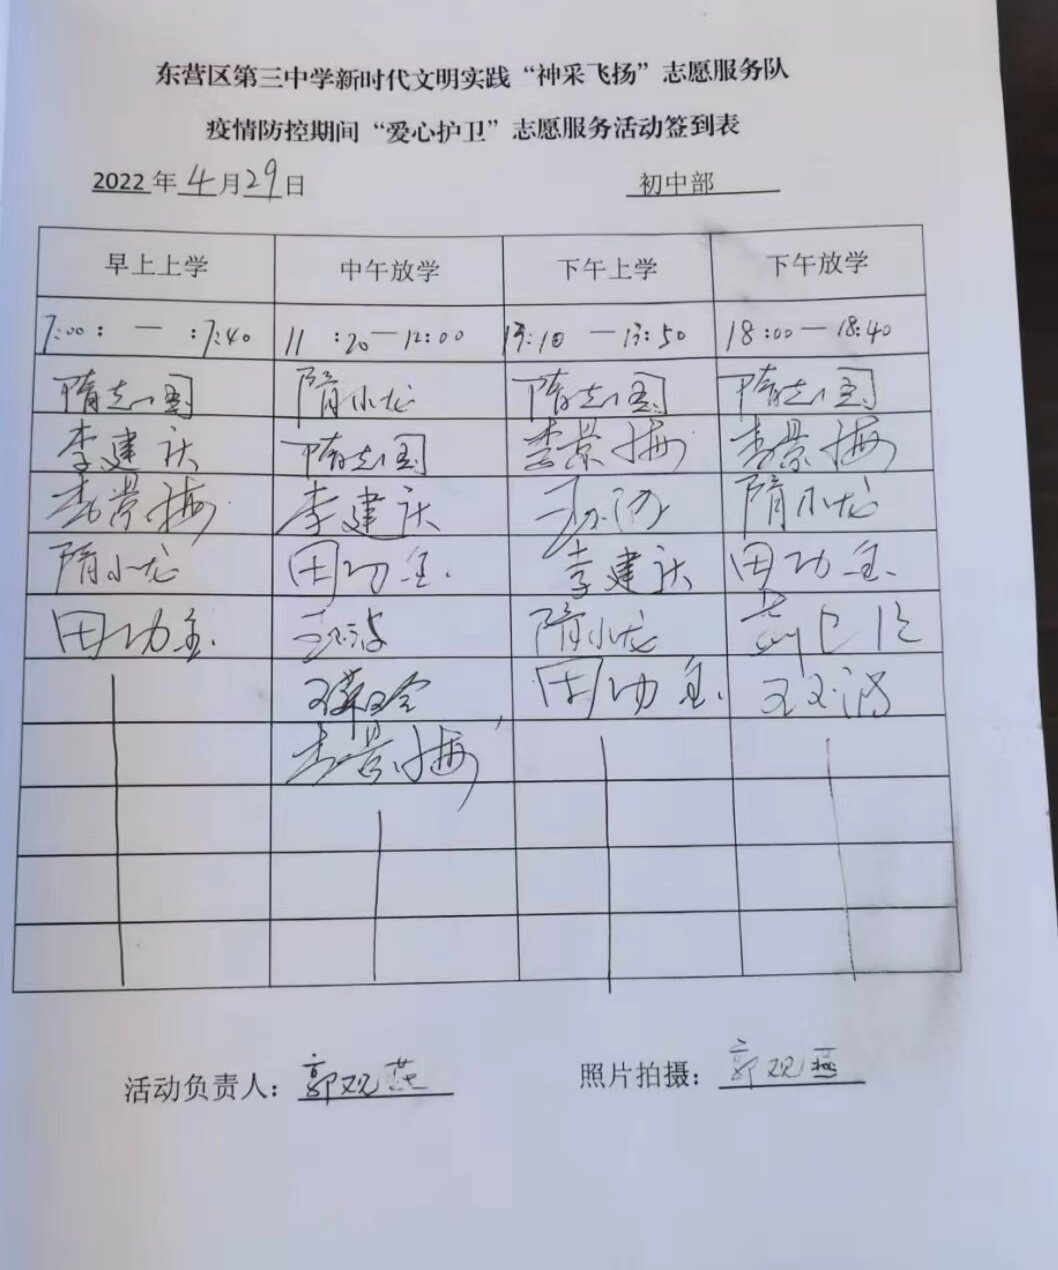 东营区第三中学新时代文明实践“神采飞扬”志愿服务队
疫情防控期间“爱心护卫”志愿服务活动签到表
2022 年 4 月 29 日 初中部
早上上学 中午放学 下午上学 下午放学
7:00: — :7:40 11 :20—12:00 13:10 —13:50 18:00—18:40
隋志国 隋小龙 隋志国 隋志国
李建庆 隋志国 李景梅 李景梅
李景梅 李建庆 隋小龙
隋小龙 田功全 李建庆 田功全
田功全 隋小龙
田功全
李景梅
活动负责人: 郭观燕 照片拍摄: 郭观燕